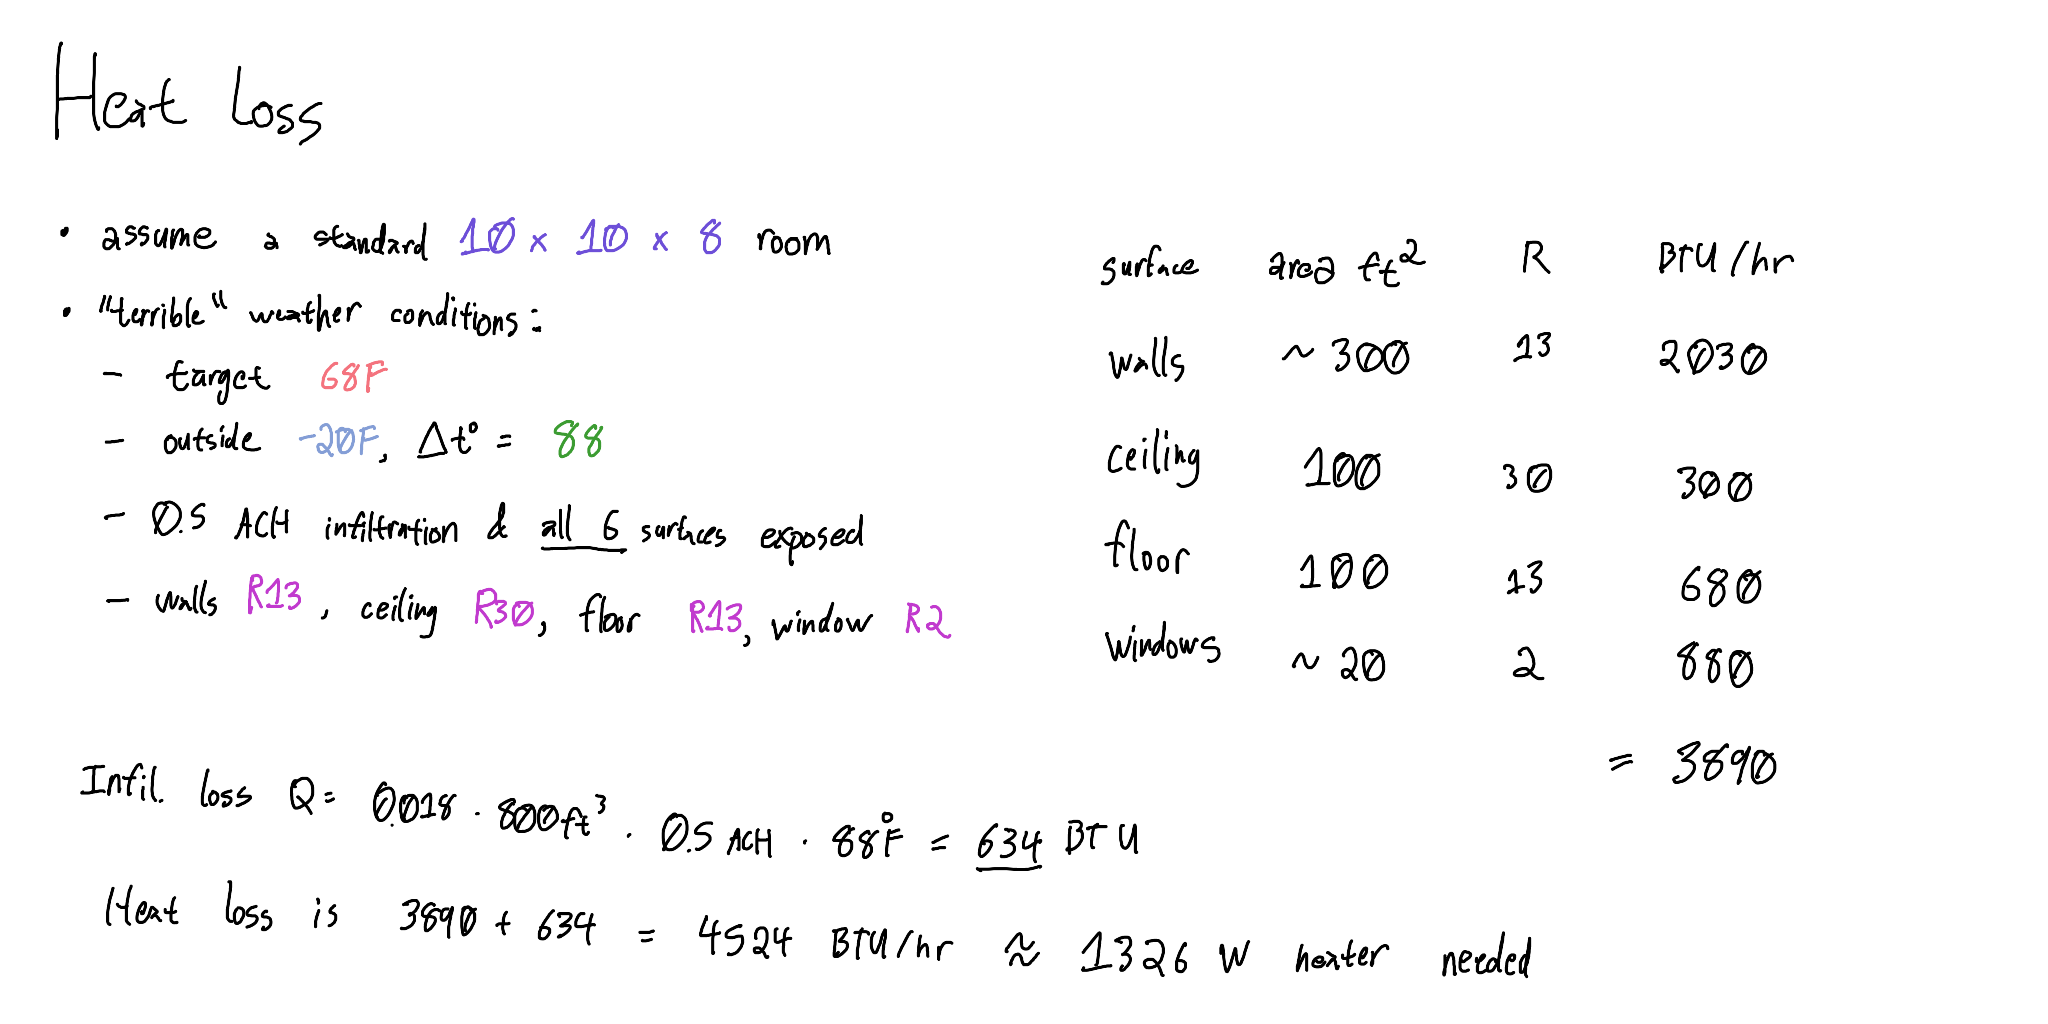 Heat Loss
• assume a standard 10 x 10 x 8 room
• "terrible" weather conditions:
- target 68F
- outside -20F, Δt° = 88
- 0.5 ACH infiltration & all 6 surfaces exposed
- walls R13, ceiling R30, floor R13, window R2
surface area ft² R BTU/hr
walls ~300 13 2030
ceiling 100 30 300
floor 100 13 680
windows ~20 2 880
= 3890
Infil. loss Q = 0.018 · 800ft³ · 0.5 ACH · 88°F = 634 BTU
Heat loss is 3890 + 634 = 4524 BTU/hr ≈ 1326 W heater needed